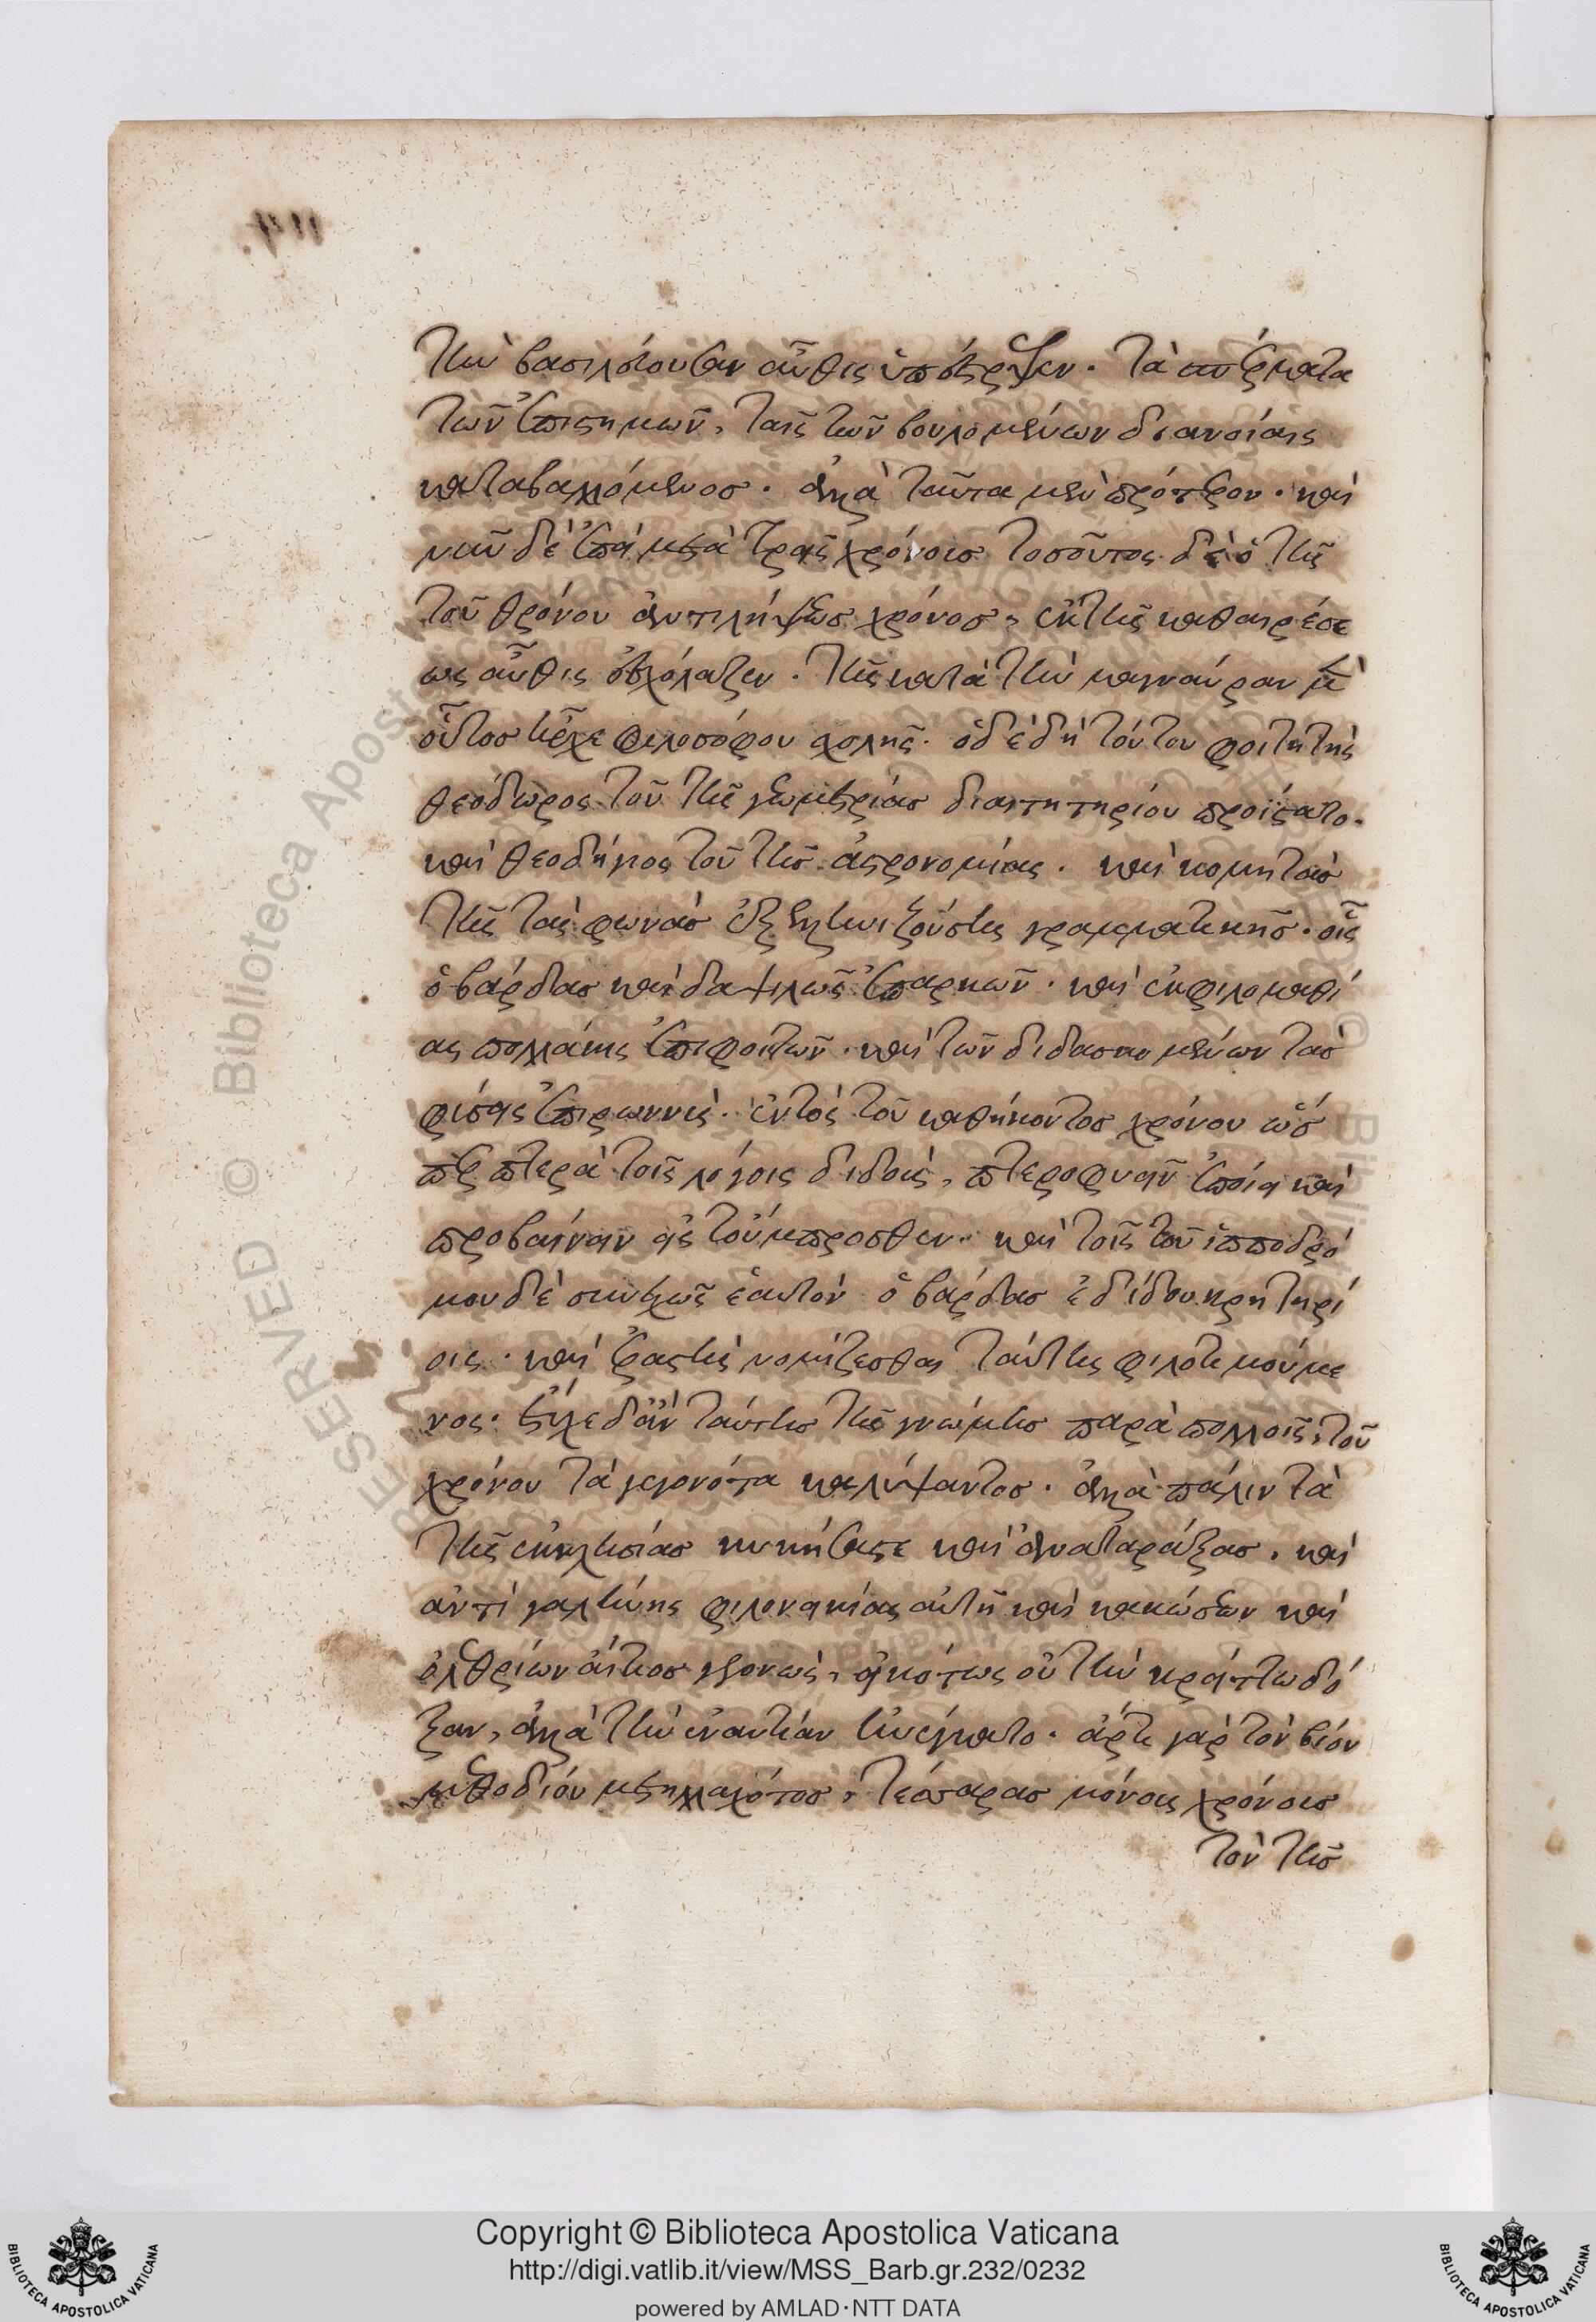 τὴν βασιλεύουσαν αὖθις ὑπέστρεψεν. τὰ σπέρματα
τῶν ἐπιστημῶν, ταῖς τῶν βουλομένων διανοίαις
καταβαλλόμενος. ἀλλὰ ταῦτα μὲν πρότερον. καὶ
νῦν δὲ ἐπεὶ μετὰ τρεῖς χρόνους τοσοῦτος δὲ ὁ τῆς
τοῦ θρόνου ἀντιλήψεως χρόνος, ἐκ τῆς καθαιρέσε
ως αὖθις ἐσχόλαζεν. τῆς κατὰ τὴν μαγναύραν μὲν
οὗτος ἦρχε φιλοσόφου σχολῆς. ὁ δὲ δὴ τούτου φοιτητὴς
θεόδωρος τοῦ τῆς γεωμετρίας διαιτητηρίου προΐστατο.
καὶ θεοδήγιος τοῦ τῆς ἀστρονομίας. καὶ κομητᾶς
τῆς τὰς φωνὰς ἐξελληνιζούσης γραμματικῆς. οἷς
ὁ βάρδας καὶ δαψιλῶς ἐπαρκῶν. καὶ ἐκ φιλομαθί
ας πολλάκις ἐπιφοιτῶν. καὶ τῶν διδασκομένων τὰς
φύσεις ἐπιρωννὺς. ἐντὸς τοῦ καθήκοντος χρόνου ὥσ
περ πτερὰ τοῖς λόγοις διδοὺς, πτεροφυεῖν ἐποίει καὶ
προβαίνειν εἰς τοὔμπροσθεν. καὶ τοῖς τοῦ ἱπποδρό
μου δὲ συνεχῶς ἑαυτὸν ὁ βάρδας ἐδίδου κριτηρί
οις. καὶ ἐραστὴς νομίζεσθαι ταύτης φιλοτιμούμε
νος. ἔτυχε δ' ἂν ταύτης τῆς γνώμης παρὰ πολλοῖς, τοῦ
χρόνου τὰ γεγονότα καλύψαντος. ἀλλὰ πάλιν τὰ
τῆς ἐκκλησίας κυκήσας τε καὶ ἀναταράξας. καὶ
ἀντὶ γαλήνης φιλονεικίας αὐτῇ καὶ κακώσεων καὶ
ὀλεθρίων αἴτιος γεγονὼς, εἰκότως οὐ τὴν κρείττω δό
ξαν, ἀλλὰ τὴν ἐναντίαν ἠνέγκατο. ἄρτι γὰρ τὸν βίον
μεθοδίου μετηλλαχότος, τέσσαρας μόνους χρόνους
τὸν τῆς